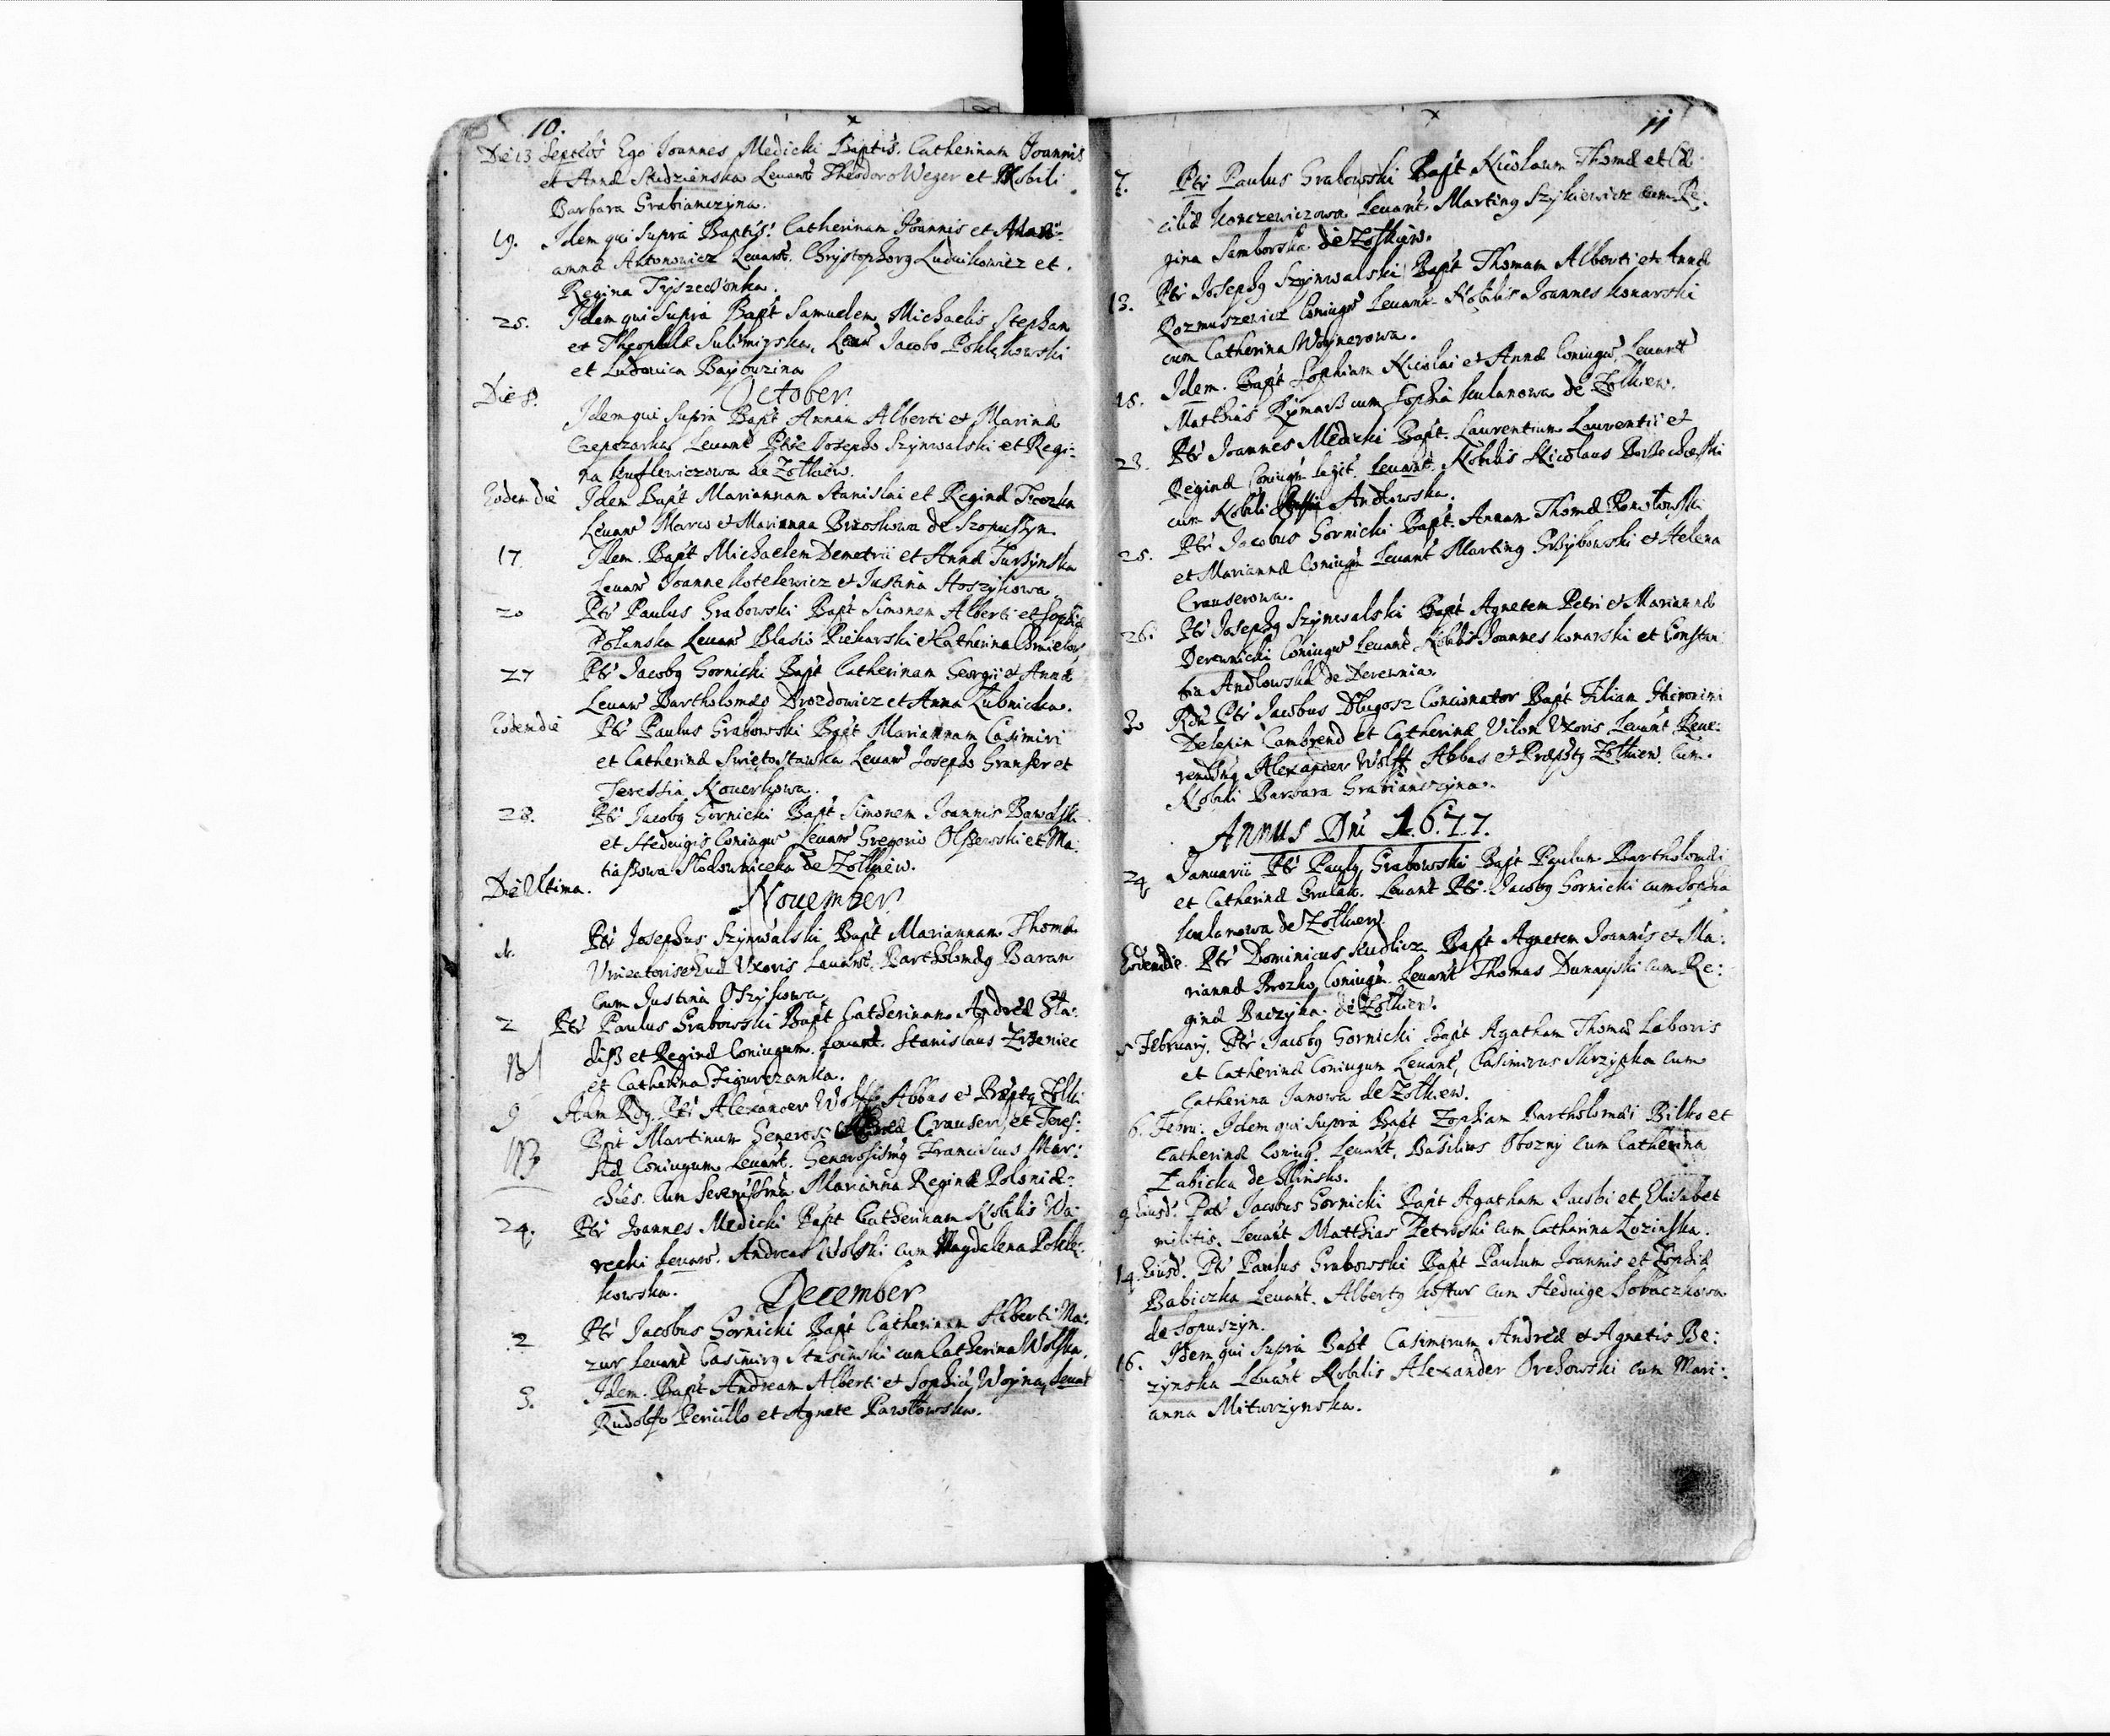 10.
Die 13 Septebs Ego Joannes Medicki Baptis. Catherinam Joannis
et Annæ Studzienska Levant Theodoro Weger et Nobili
Barbara Grabianczyna.
19. Idem qui Supra Baptis. Catherinam Joannis et Mari
anna Antonowicz Levant. Chrystophorg Ludwikowicz et
Regina Tyszewionka.
25. Idem qui Supra Bapt Samuelem Michaelis Stephan
et Theophile Sulimirska, Levan Jacobo Poklękowski
et Ludovica Bayburzina
October.
Die 8. Idem qui Supra Bapt Annam Alberti et Marinæ
Czepczarka Levant Ptre Josepho Szynwalski et Regi:
na Kuflewiczowa de Zołkiew.
Eodem die Idem Bapt Mariannam Stanislai et Reginæ
Levant Marco et Marianna de Sopuszyn.
17. Idem. Bapt Michaelem Demetrii et Annæ Turzynska
Levant Joanne Kotelewicz et Justina Hoszykowa.
20 Ptr Paulus Grabowski Bapt Simonem Alberti et Sophiæ
Polanska Levant Blasio Piekarski et Catherina Chmielow
27 Ptr Jacobg Gornicki Bapt Catherinam Georgii et Annæ
Levant Bartholomæo Drozdowicz et Anna Lubnicka.
Eodem die Ptr Paulus Grabowski Bapt Mariannam Casimiri
et Catherinæ Swiętosławska Levant Josepho Granser et
Teressia Kouerkowa.
28. Ptr Jacobg Gornicki Bapt Simonem Joannis Bawolski
et Hedvigis Coniugu Levant Gregorio Olszewski et Ma:
tiaszowa Słodowniczka de Zołkiew.
Die Ultima.
November
1. Ptr Josephus Szynwalski Bapt Mariannam Thomæ
et Eius Uxoris Levant. Bartholomæg Baran
cum Justina Oszykowa,
2 Ptr Paulus Grabowski Bapt Catherinam Andreæ Sta:
disz et Reginæ Coniugum. Levant. Stanislaus
et Catherina Figurczanka.
NB
9 Adm Rdg. Ptr Alexander Wolff Abbas et Præptg Zolki
Bpt Martinum Generosi Crauseri, et Teres:
NB
siæ Coniugum Levant. Generosismg Franciscus Mar:
chies. Cum Serenissima Marianna Reginæ Poloniæ:
24. Ptr Joannes Medicki Bapt Catherinam Nobilis Wa:
recki Levant. Andreas Wolski cum Magdalena Poklę:
kowska.
December
2 Ptr Jacobus Gornicki Bapt Catherinam Alberti Ma:
zur Levant Casimirg Stasinski cum Catherina Wolska.
5. Idem. Bapt Andream Alberti et Sophiæ Woyna, Levant
Rudolfo Pericillo et Agnete Pawłowska.
11
7. Ptr Paulus Grabowski Bapt Nicolaum Thomæ et Cæ:
ciliæ Konczewiczowa Levant. Marting Szykiewicz cum Re:
gina Samborska de Zołkiew.
13. Ptr Josephg Szynwalski Bapt Thomam Alberti et Annæ
Rozmuszewicz Coniugu Levant Nobilis Joannes Konarski
cum Catherina Woynerowa.
18. Idem. Bapt Sophiam Nicolai et Annæ Coniugu, Levant
Matthias Rymarz cum Sophia Kulanowa de Zolkiew.
23. Ptr Joannes Medicki Bapt. Laurentium Laurentii et
Reginæ Coniugu legit. Levant. Nobilis Nicolaus
cum Nobili Andłowska.
25. Ptr Jacobus Gornicki Bapt. Annam Thomæ
et Mariannæ Coniugu Levant Marting Grzybowski et Helena
Crauserowa.
26. Ptr Josephg Szynwalski Bapt Agnetem Petri et Mariannæ
Derewnicki Coniugu Levant Nobilis Joannes Konarski et Constan
tia Andlowska de Derewnia.
30 Rdu Ptr Jacobus Długosz Concionator Bapt Filiam Hieronimi
Delepin Cambrend et Catherinæ Vilon Uxoris Levant Reve:
rendissg Alexander Wolff Abbas et Præpstg Zolkiew. Cum
Nobili Barbara Grabianczyna.
Annus Dni 1677.
24 Januarii Ptr Paulg Grabowski Bapt Paulum Bartholomæi
et Catherinæ Grulak. Levant Ptr. Jacobg Gornicki cum Sophia
Kulanowa de Zołkiew.
Eodem die. Ptr Dominicus Kudlicz Bapt Agnetem Joannis et Ma:
riannæ Brozko Coniugu. Levant Thomas Dunayski cum Re:
ginæ Baczyka de Zolkiew.
5 February. Ptr Jacobg Gornicki Bapt Agatham Thomæ Laboris
et Catherinæ Coniugum Levant, Casimirus Skrzypka cum
Catherina Janowa de Zolkiew.
6. Febru. Idem qui Supra Bapt Zophiam Bartholomæi Bilko et
Catherinæ Coniug. Levant, Basilius Obozny cum Catherina
Zabicka de Glinsko.
9 Eiusd. Ptr Jacobus Gornicki Bapt Agatham Jacobi et Elisabet
militis. Levant Matthias Petroski cum Catharina Łozinska.
14. Eiusd. Ptr Paulus Grabowski Bapt Paulum Joannis et Zophiæ
Babiczka Levant. Albertg Kostur cum Hedvige Sobaczkowa
de Sopuszyn.
16. Idem qui Supra Bapt Casimirum Andreæ et Agnetis Be:
zynska Levant Nobilis Alexander Orchowski cum Mari:
anna Miturzynska.